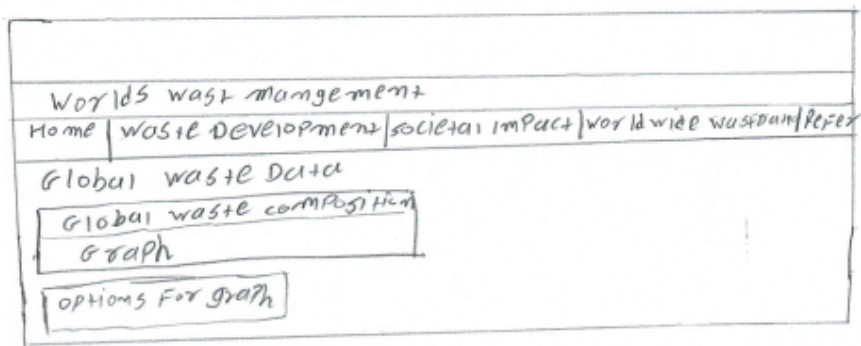 Worlds wast mangement
Home | waste Development | societal impact | world wide wast Data | Refer
Global waste Data
Global waste composition
Graph
options For graph